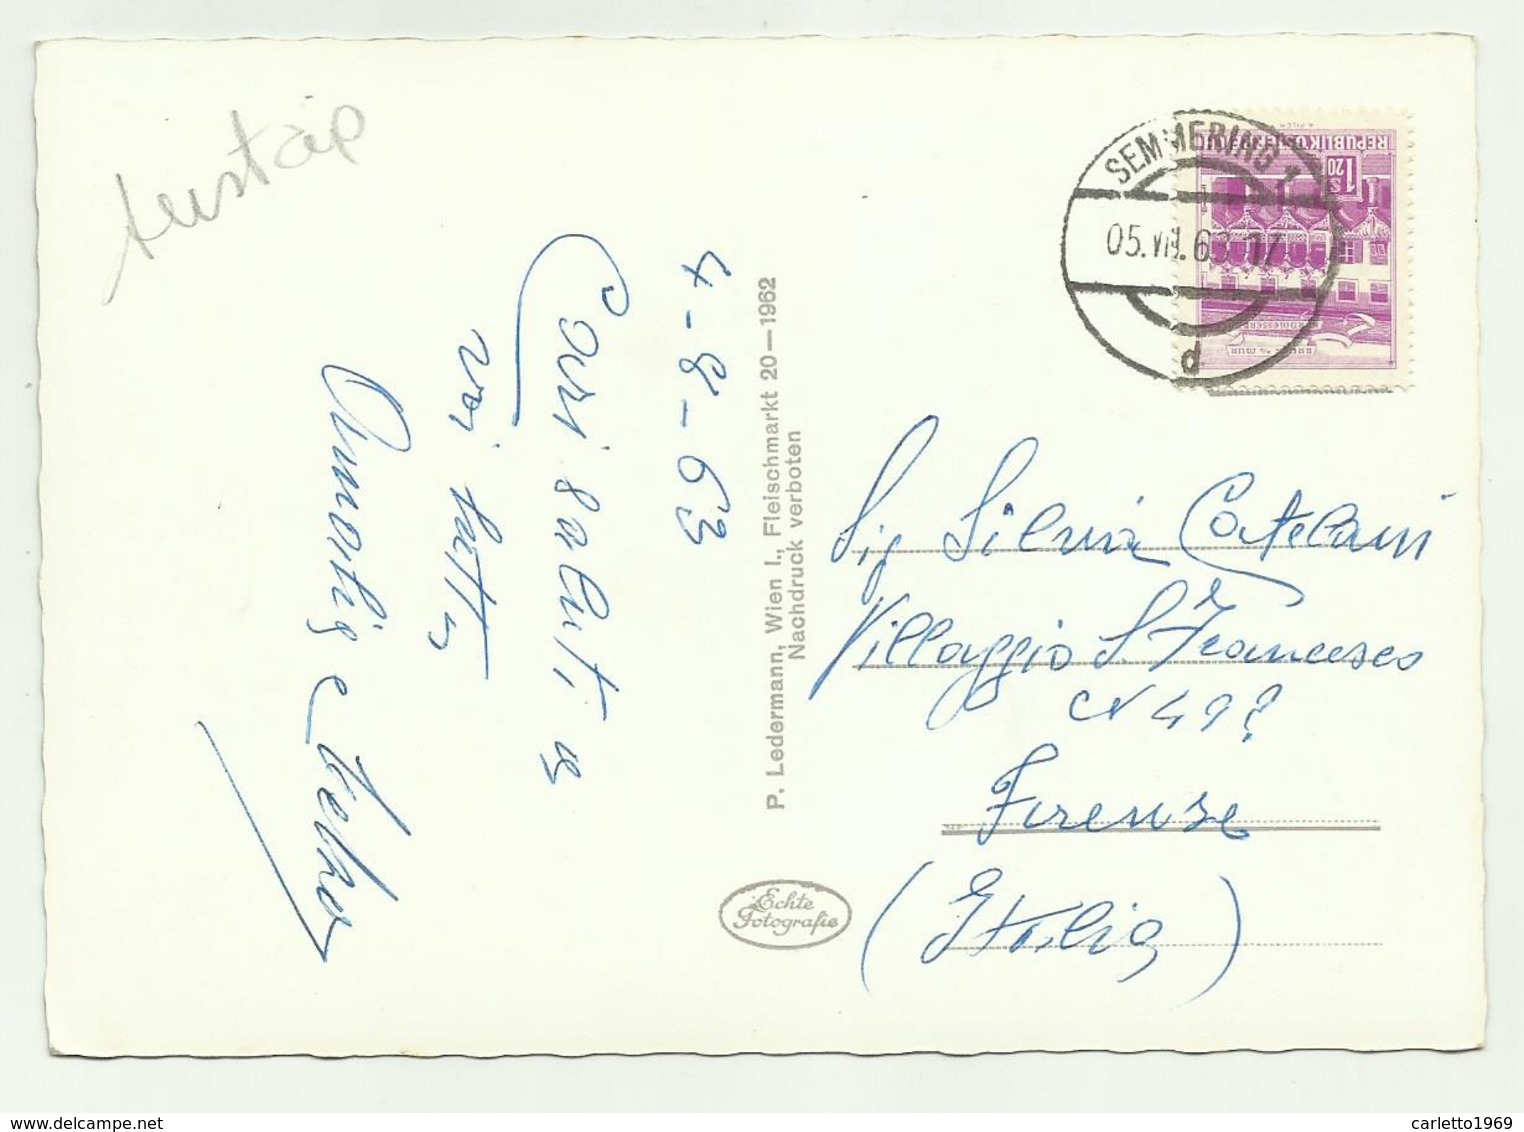 4-8-63
Cari saluti a
voi tutti
e
Sig Silvia Catelani
Villaggio S. Francesco
N 49
Firenze
(Italia)
P. Ledermann, Wien I., Fleischmarkt 20—1962
Nachdruck verboten
Echte
Fotografie
SEMMERING 1
05.VIII.63 17
d
REPUBLIK ÖSTERREICH
1.20
S
BRUCK a. MUR
KORNMESSERHAUS
carletto1969